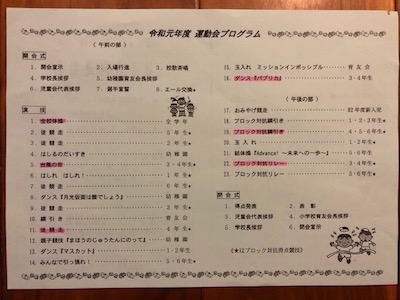 令和元年度 運動会プログラム
(午前の部)
開会式
1. 開会宣示
2. 入場行進
3. 校歌斉唱
4. 学校長挨拶
5. 幼稚園育友会長挨拶
6. 児童会代表挨拶
7. 選手宣誓
8. エール交換★
演技
1. 全校体操 全学年
2. 徒競走 5年生
3. 徒競走 2年生
4. はしるのだいすき 幼稚園
5. 台風の目 3・4年生★
6. はしれ はしれ! 1年生
7. 徒競走 6年生
8. ダンス『月光仮面は誰でしょう』 幼稚園
9. 徒競走 3年生
10. 綱引き 育友会
11. 徒競走 4年生
12. 親子競技『まほうのじゅうたんにのって』 幼稚園
13. ダンス『マスカット』 1・2年生
14. みんなで引っ張れ! 5・6年生★
15. 玉入れ ミッションインポッシブル 育友会
16. ダンス『パプリカ』 3・4年生
(午後の部)
17. おみやげ競走
18. ブロック対抗綱引き 1・2・3年生★
19. ブロック対抗綱引き 4・5・6年生★
20. 玉入れ 1・2年生
21. 組体操『Advance! ~未来への一歩~』 5・6年生
22. ブロック対抗リレー 3・4年生★
23. ブロック対抗リレー 5・6年生★
閉会式
1. 得点発表
2. 表彰
3. 児童会代表挨拶
4. 小学校育友会長挨拶
5. 学校長挨拶
6. 閉会宣示
(★はブロック対抗得点競技)